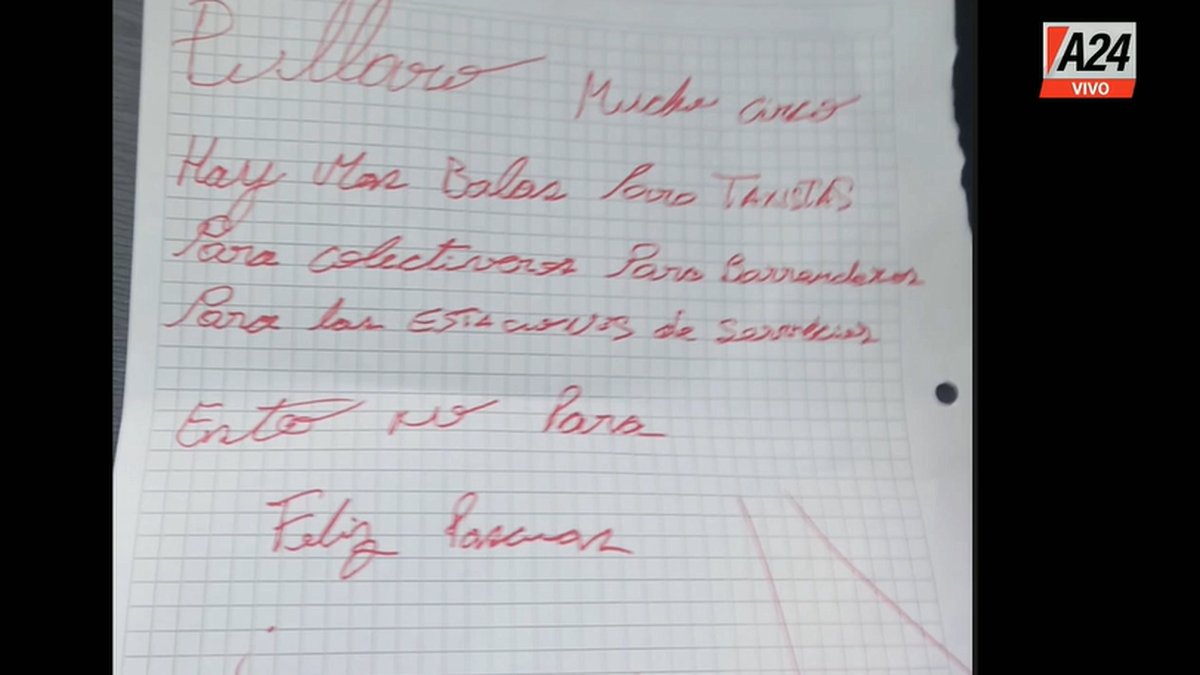 Pullaro
Mucho circo
Hay Mas Balas Para TAXISTAS
Para colectiveros Para Barrenderos
Para las ESTACIONES de Servicios
Esto NO Para
Feliz Pascuas
A24
VIVO